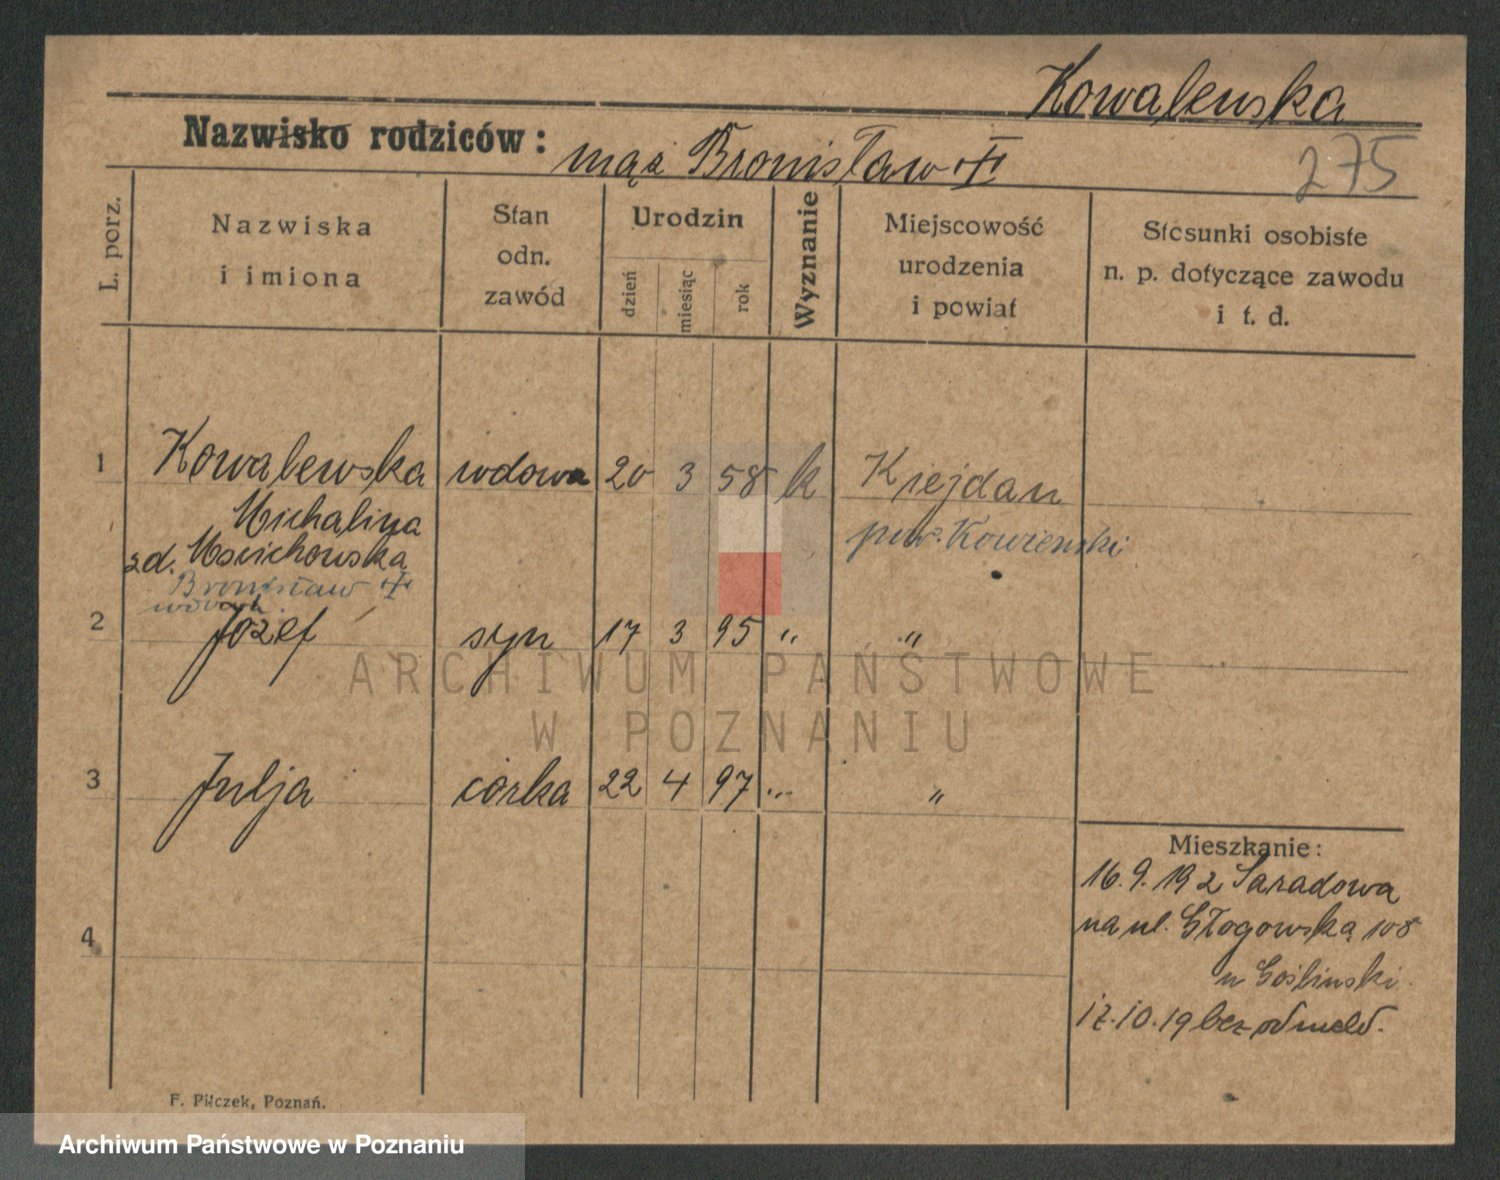 Kowalewska
Nazwisko rodziców: mąż Bronisław
275
L. porz.
Nazwiska
i imiona
Stan
odn.
zawód
Urodzin
dzień
miesiąc
rok
Wyznanie
Miejscowość
urodzenia
i powiat
Stosunki osobiste
n. p. dotyczące zawodu
i t. d.
1 Kowalewska wdowa 20 3 58 k Kiejdan
Michalina pow. Kowieński
zd.
Bronisław
2 Józef syn 17 3 95 " "
3 Julja córka 22 4 97 ... "
4
Mieszkanie:
16.9.19 z Saradowa
na ul. Głogowską 108
u Gośliński
17.10.19 bez odmeld.
F. Pilczek, Poznań.
ARCHIWUM PAŃSTWOWE
W POZNANIU
Archiwum Państwowe w Poznaniu